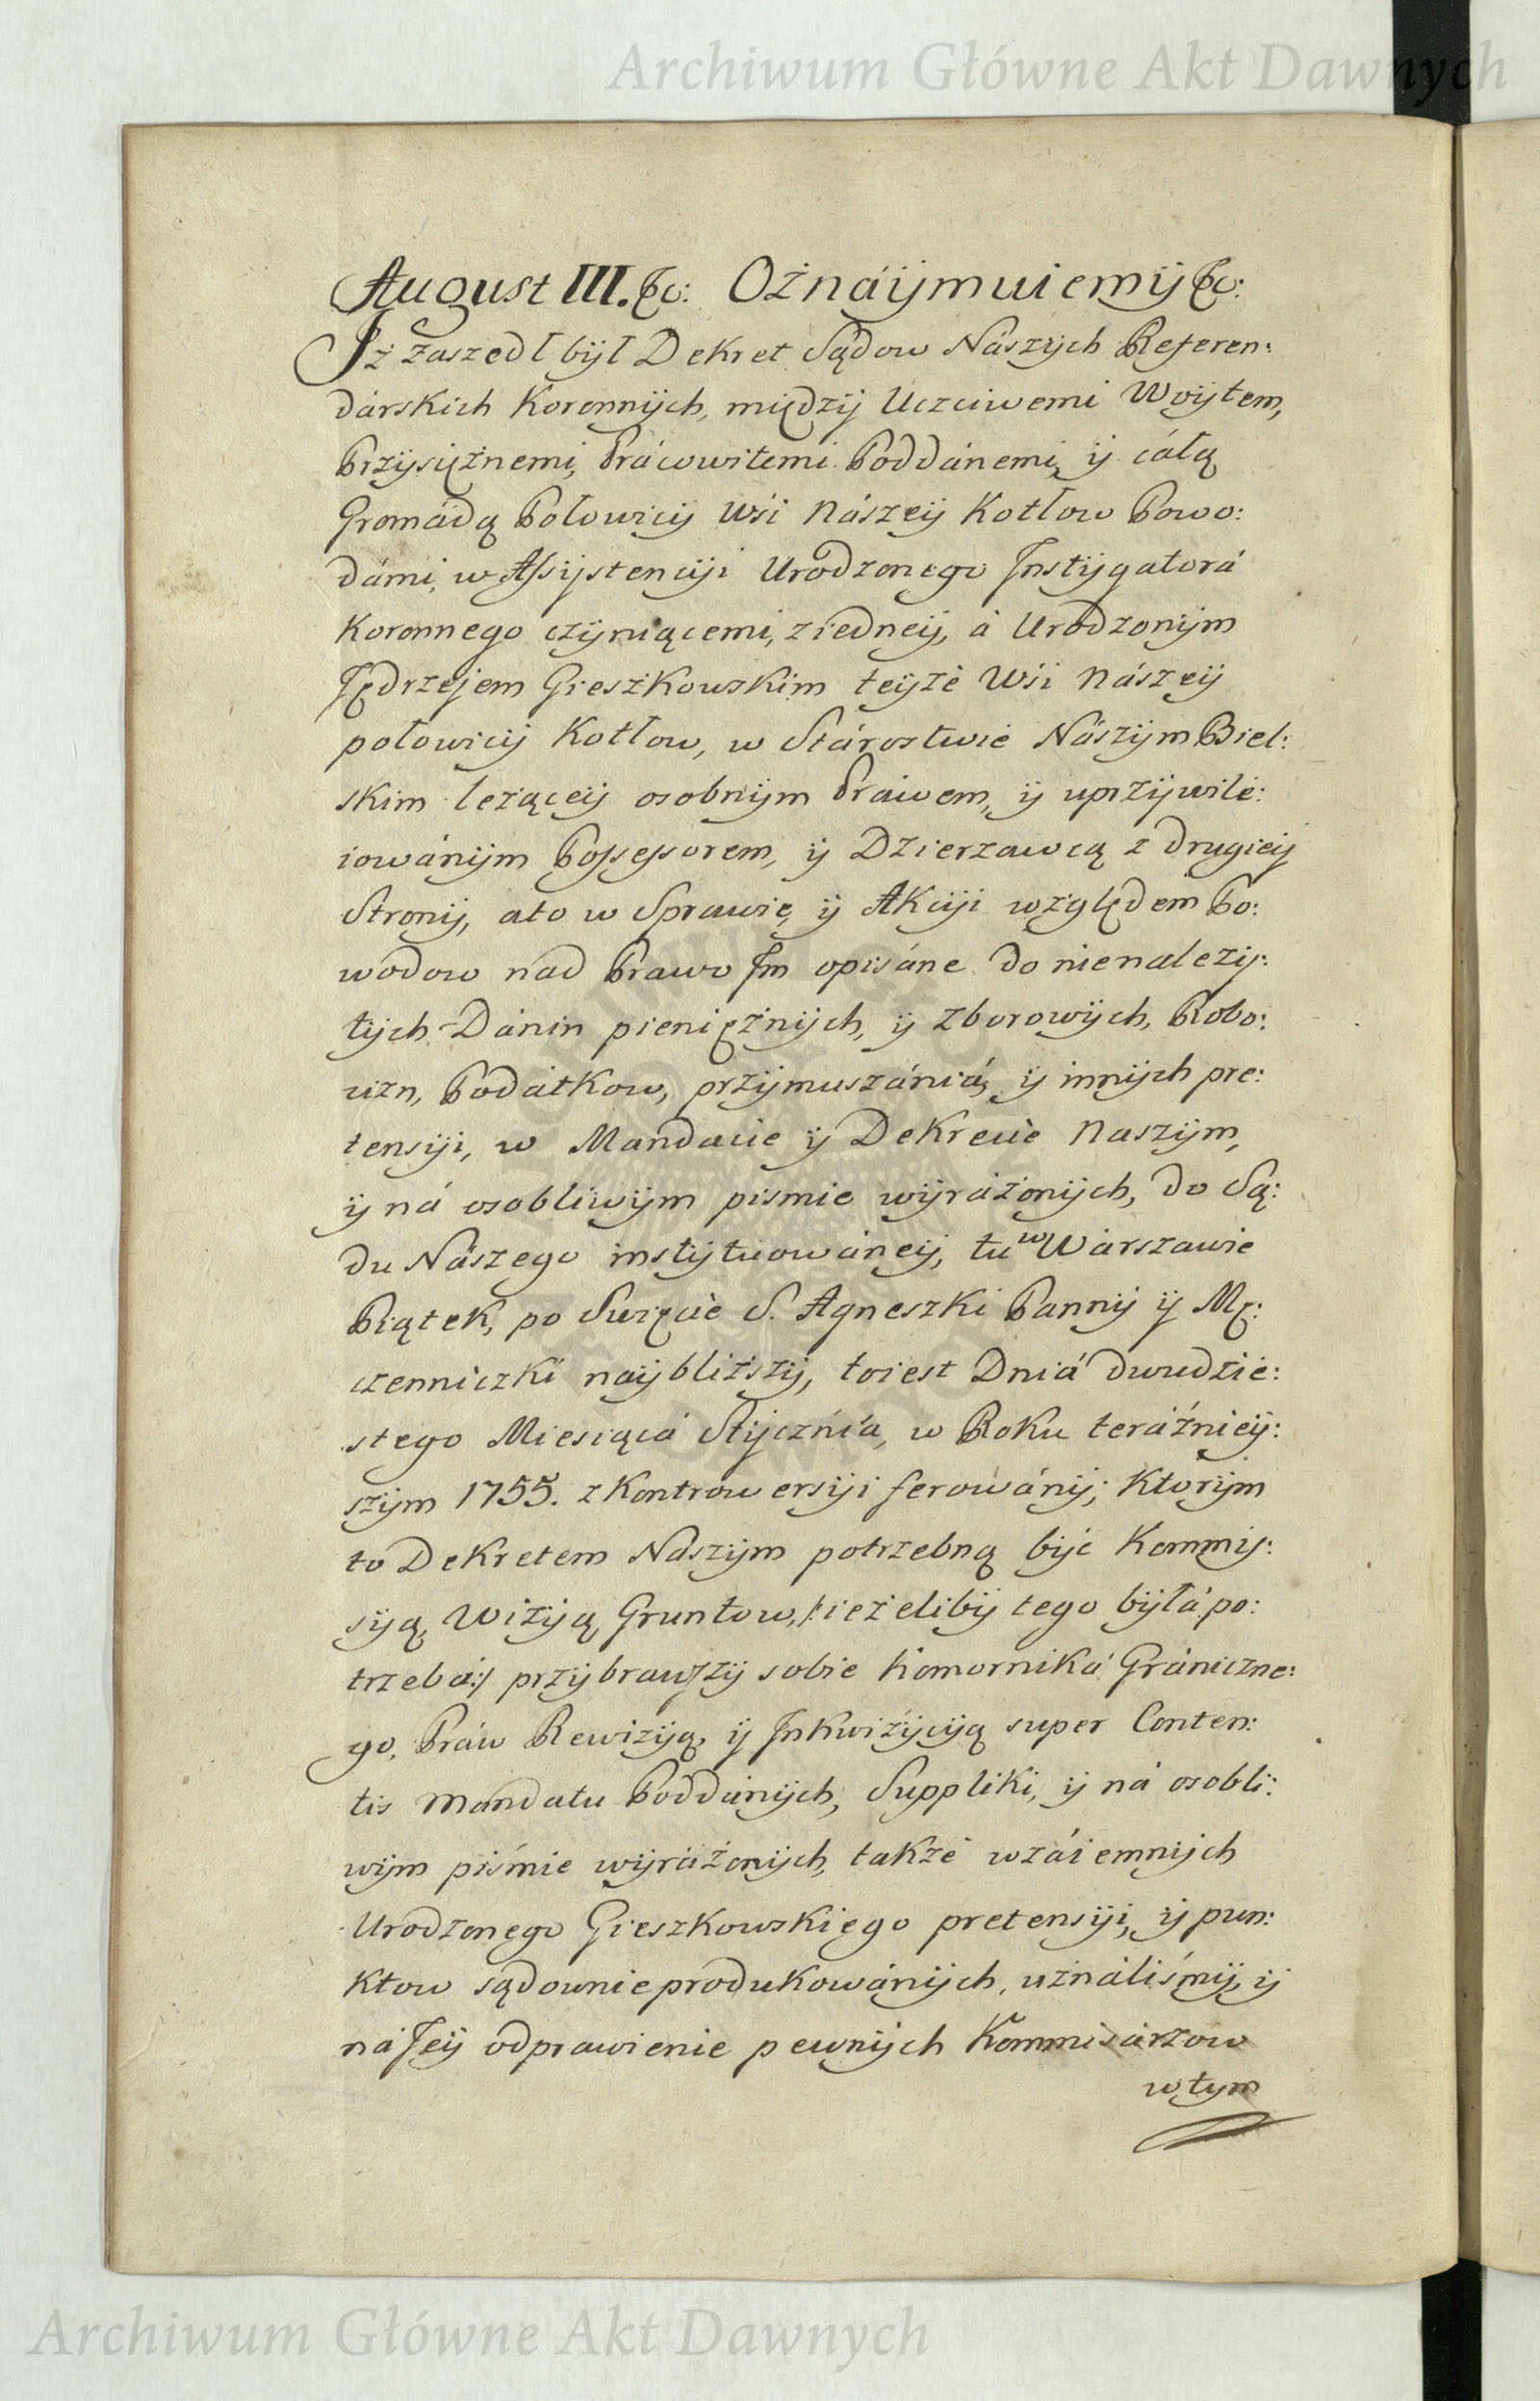 Archiwum Główne Akt Dawnych
August III. &c: Oźnáÿmuiemÿ &c:
Jż zaszedł bÿł Dekret Sądow Nászÿch Referen:
dárskich Koronnÿch, międzÿ Uczciwemi Woÿtem,
Przÿsiężnemi, Prácowitemi Poddánemi, ÿ cáłą
Gromádą Połowicÿ Wśi Nászeÿ Kotłow Powo:
dámi, w Assÿstencÿi Urodzonego Instÿgatorá
Koronnego czÿniącemi, z iedneÿ, á Urodzonÿm
Jędrzejem Gieszkowskim teÿże Wśi Nászeÿ
połowicÿ Kotłow, w Stárostwie Nászÿm Biel:
skim leżąceÿ osobnÿm Prawem, ÿ uprzÿwile:
iowánÿm Possessorem, ÿ Dzierzawcą z drugieÿ
Stronÿ, ato w Sprawie, ÿ Akcÿi względem Po:
wodow nad Prawo Im opisáne do nienależÿ:
tÿch Dánin pieniężnÿch, ÿ Zborowÿch, Robo:
cizn, Podatkow, przÿmuszániá, ÿ innÿch pre:
tensÿi, w Mandacie ÿ Dekrecie Naszÿm,
ÿ ná osobliwÿm pismie wÿrażonÿch, do Są:
du Nászego instÿtuowáneÿ, tu w Warszawie
Piątek, po Swięcie S. Agneszki Pannÿ ÿ Mę:
czenniczki naÿbliższÿ, toiest Dniá dwudzie:
stego Miesiącá Stÿczńia, w Roku teráźnieÿ:
szÿm 1755. z Kontrowersÿi ferowánÿ; Ktorÿm
to Dekretem Nászÿm potrzebną bÿć Kommis:
sÿą, Wizÿą, Gruntow, /:ieżelibÿ tego bÿłá po:
trzebá:/ przÿbrawszÿ sobie Komorniká GránicznE:
go, Práw Rewizÿą, ÿ Inkwizÿcÿą super Conten:
tis Mandatu Poddánÿch, Suppliki, ÿ ná osobli:
wÿm piśmie wÿrażonÿch, także wzáiemnÿch
Urodzonego Gieszkowskiego pretensÿi, ÿ pun:
ktow sądownie produkowánÿch, uználiśmÿ, ÿ
ná Jeÿ odprawienie pewnÿch Kommisárzow
w tym
Archiwum Główne Akt Dawnych